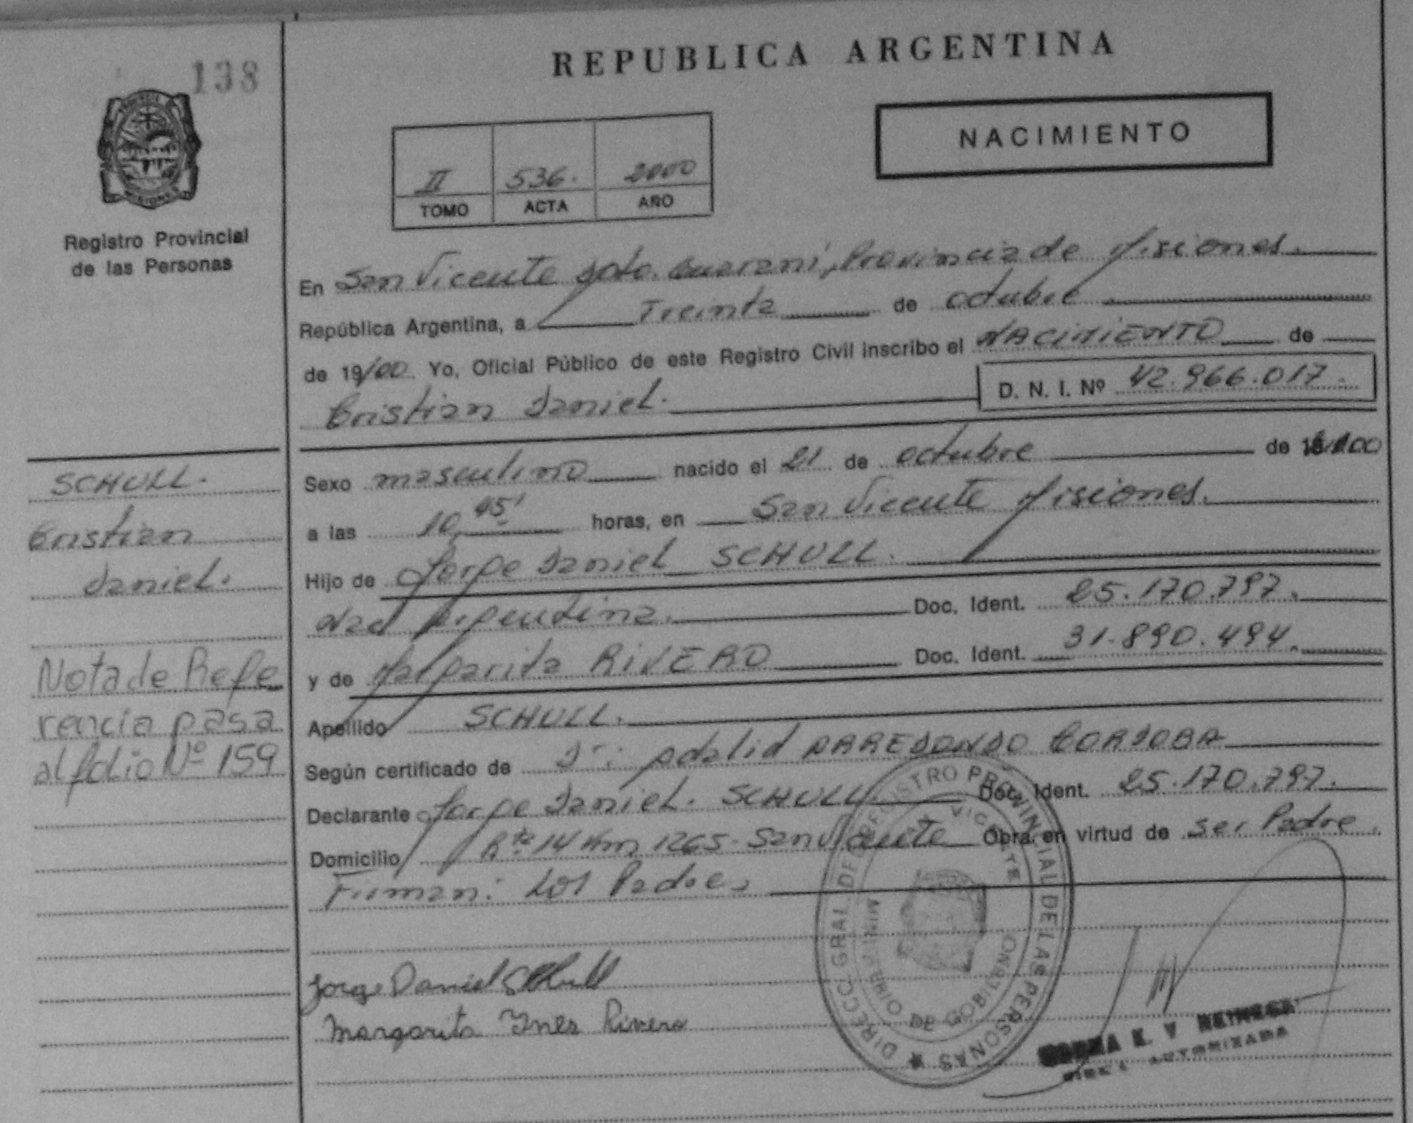 138
REPUBLICA ARGENTINA
NACIMIENTO
II 536. 2000
TOMO ACTA AÑO
Registro Provincial
de las Personas
En San Vicente Dpto. Guaraní, Provincia de Misiones.
República Argentina, a Treinta de octubre
de 19/00. Yo, Oficial Público de este Registro Civil inscribo el NACIMIENTO de
D. N. I. Nº 42.966.017.
Cristian Daniel.
Sexo masculino nacido el 21 de octubre de
a las 10,45' horas, en San Vicente Misiones.
Hijo de Jorge Daniel SCHULL.
Nac Argentina. Doc. Ident. 25.170.797.
y de Margarita RIVERO Doc. Ident. 31.890.494.
Apellido SCHULL.
Según certificado de Dr: Adalid ARREDONDO CORDOBA
Declarante Jorge Daniel. SCHULL. Doc. Ident. 25.170.797.
Domicilio Rta 14 Km 1265. San Vicente Obra en virtud de ser Padre.
Firman: Los Padres
Jorge Daniel Schull
Margarita Ines Rivero
SCHULL.
Cristian
Daniel.
Nota de Refe
rencia pasa
al folio Nº 159
DIRECC. GRAL. DEL REGISTRO PROVINCIAL DE LAS PERSONAS
DE GOBIERNO
NORMA E. V
AUTORIZADA